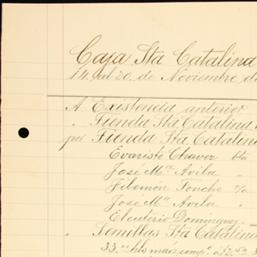 Caja Sta Catalina
14 al 20 de Noviembre de
A Existencia anterior
" Tienda Sta Catalina
por Tienda Sta Catalina
Evaristo Chavez
José Ma. Avila "
Filemon
José Ma. Avila "
Eleuterio Dominguez
" Semillas Sta Catalina
33 " hls maiz